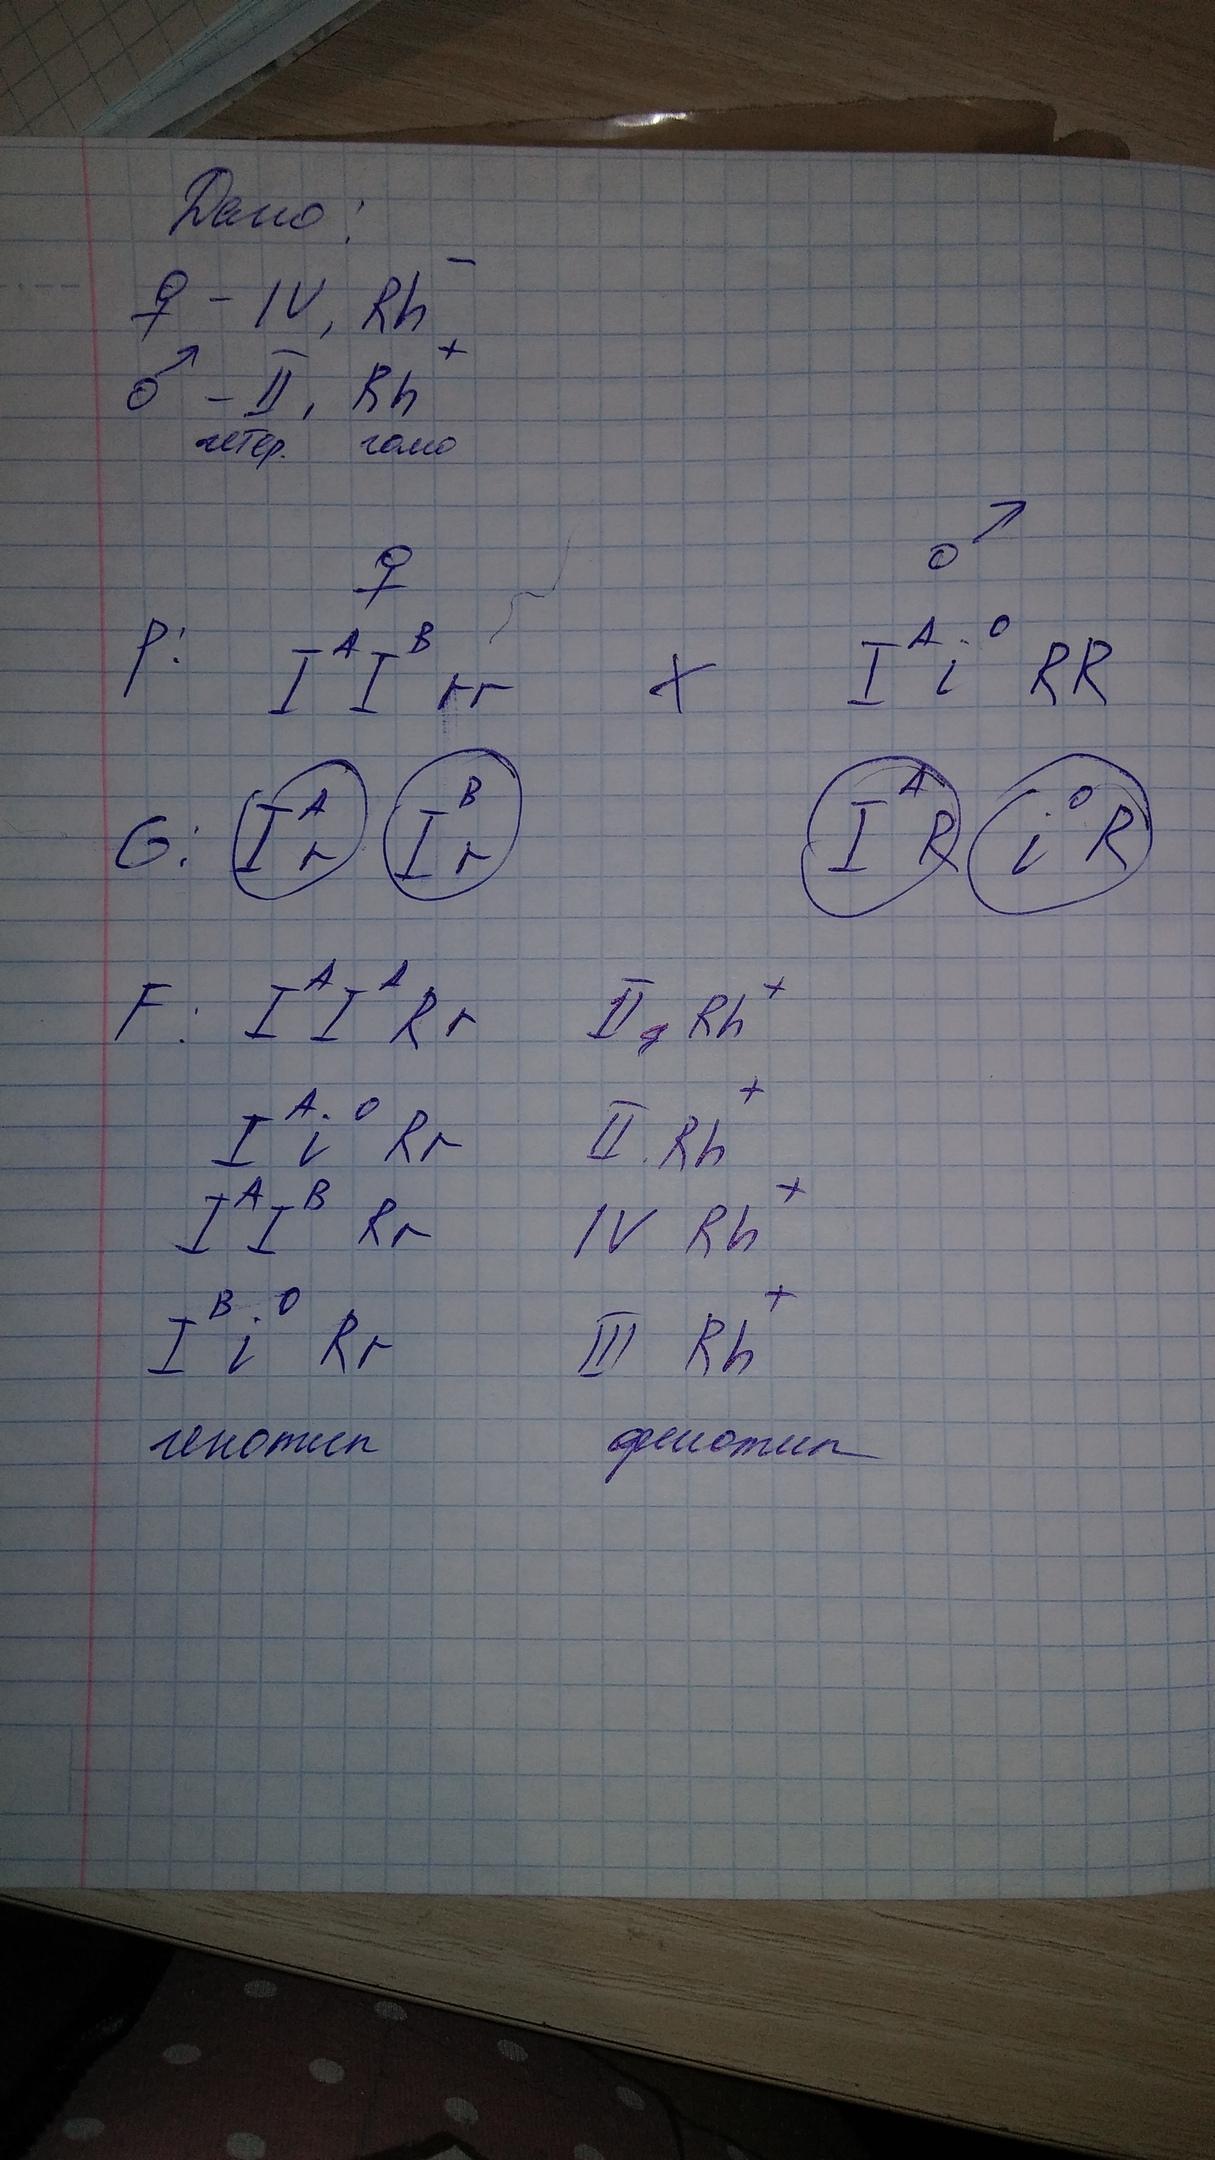 Дано:
♀ - IV, Rh⁻
♂ - II, Rh⁺
гетер. гомо
♀ ♂
P: IᴬIᴮ rr x Iᴬi⁰ RR
G: Iᴬr Iᴮr IᴬR i⁰R
F: IᴬIᴬRr II, Rh⁺
Iᴬi⁰ Rr II Rh⁺
IᴬIᴮ Rr IV Rh⁺
Iᴮi⁰ Rr III Rh⁺
генотип фенотип